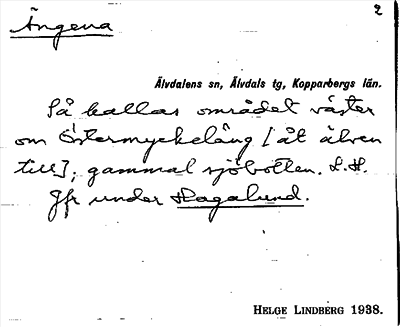 Ängena
2
Älvdalens sn, Älvdals tg, Kopparbergs län.
Så kallas området väster
om Östermyckelång [åt älven
till]; gammal sjöbotten. L. H.
Jfr under Hagalund.
HELGE LINDBERG 1938.